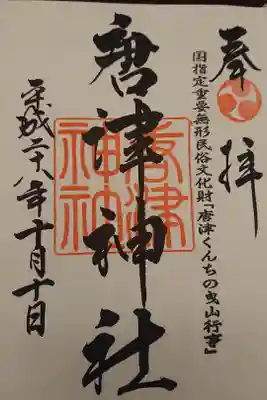 奉拝
国指定重要無形民俗文化財「唐津くんちの曳山行事」
唐津神社
唐津神社
平成二十八年十月十日